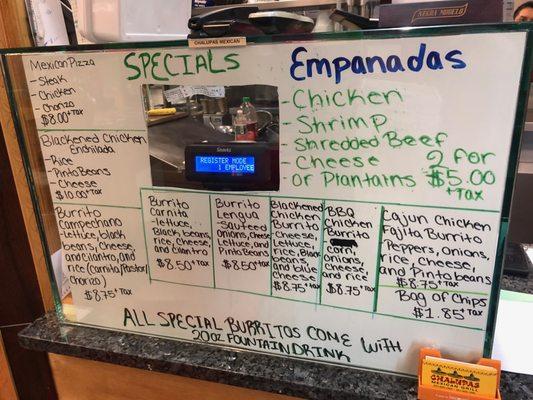 CHALUPAS MEXICAN
SPECIALS
Mexican Pizza
- Steak
- Chicken
- Chorizo
$8.00 + Tax
Blackened Chicken
Enchilada
- Rice
- Pinto Beans
- Cheese
$10.00 + Tax
Burrito
Campechano
- lettuce, black
beans, cheese,
and cilantro, and
rice (carnita/Pastor/
Chorizo)
$8.75 + Tax
REGISTER MODE
1 EMPLOYEE
Burrito
Carnita
- lettuce,
Black beans,
rice, cheese,
and cilantro
$8.50 + Tax
Burrito
Lengua
- Sauteed
onions, Cheese,
lettuce, and
Pinto beans
$8.50 + Tax
Blackened
Chicken
Burrito
Cheese,
lettuce,
rice, Black
beans,
and blue
cheese
$8.75 + Tax
BBQ
Chicken
Burrito
corn,
onions,
cheese
and rice
$8.75 + Tax
Empanadas
- Chicken
- Shrimp
- Shredded Beef
- Cheese
or Plantains
2 for
$5.00
+ Tax
Cajun Chicken
Fajita Burrito
Peppers, onions,
rice, cheese,
and Pinto beans
$8.75 + Tax
Bag of Chips
$1.85 + Tax
All Special Burritos Come with
20oz Fountain Drink
CHALUPAS
MEXICAN GRILL